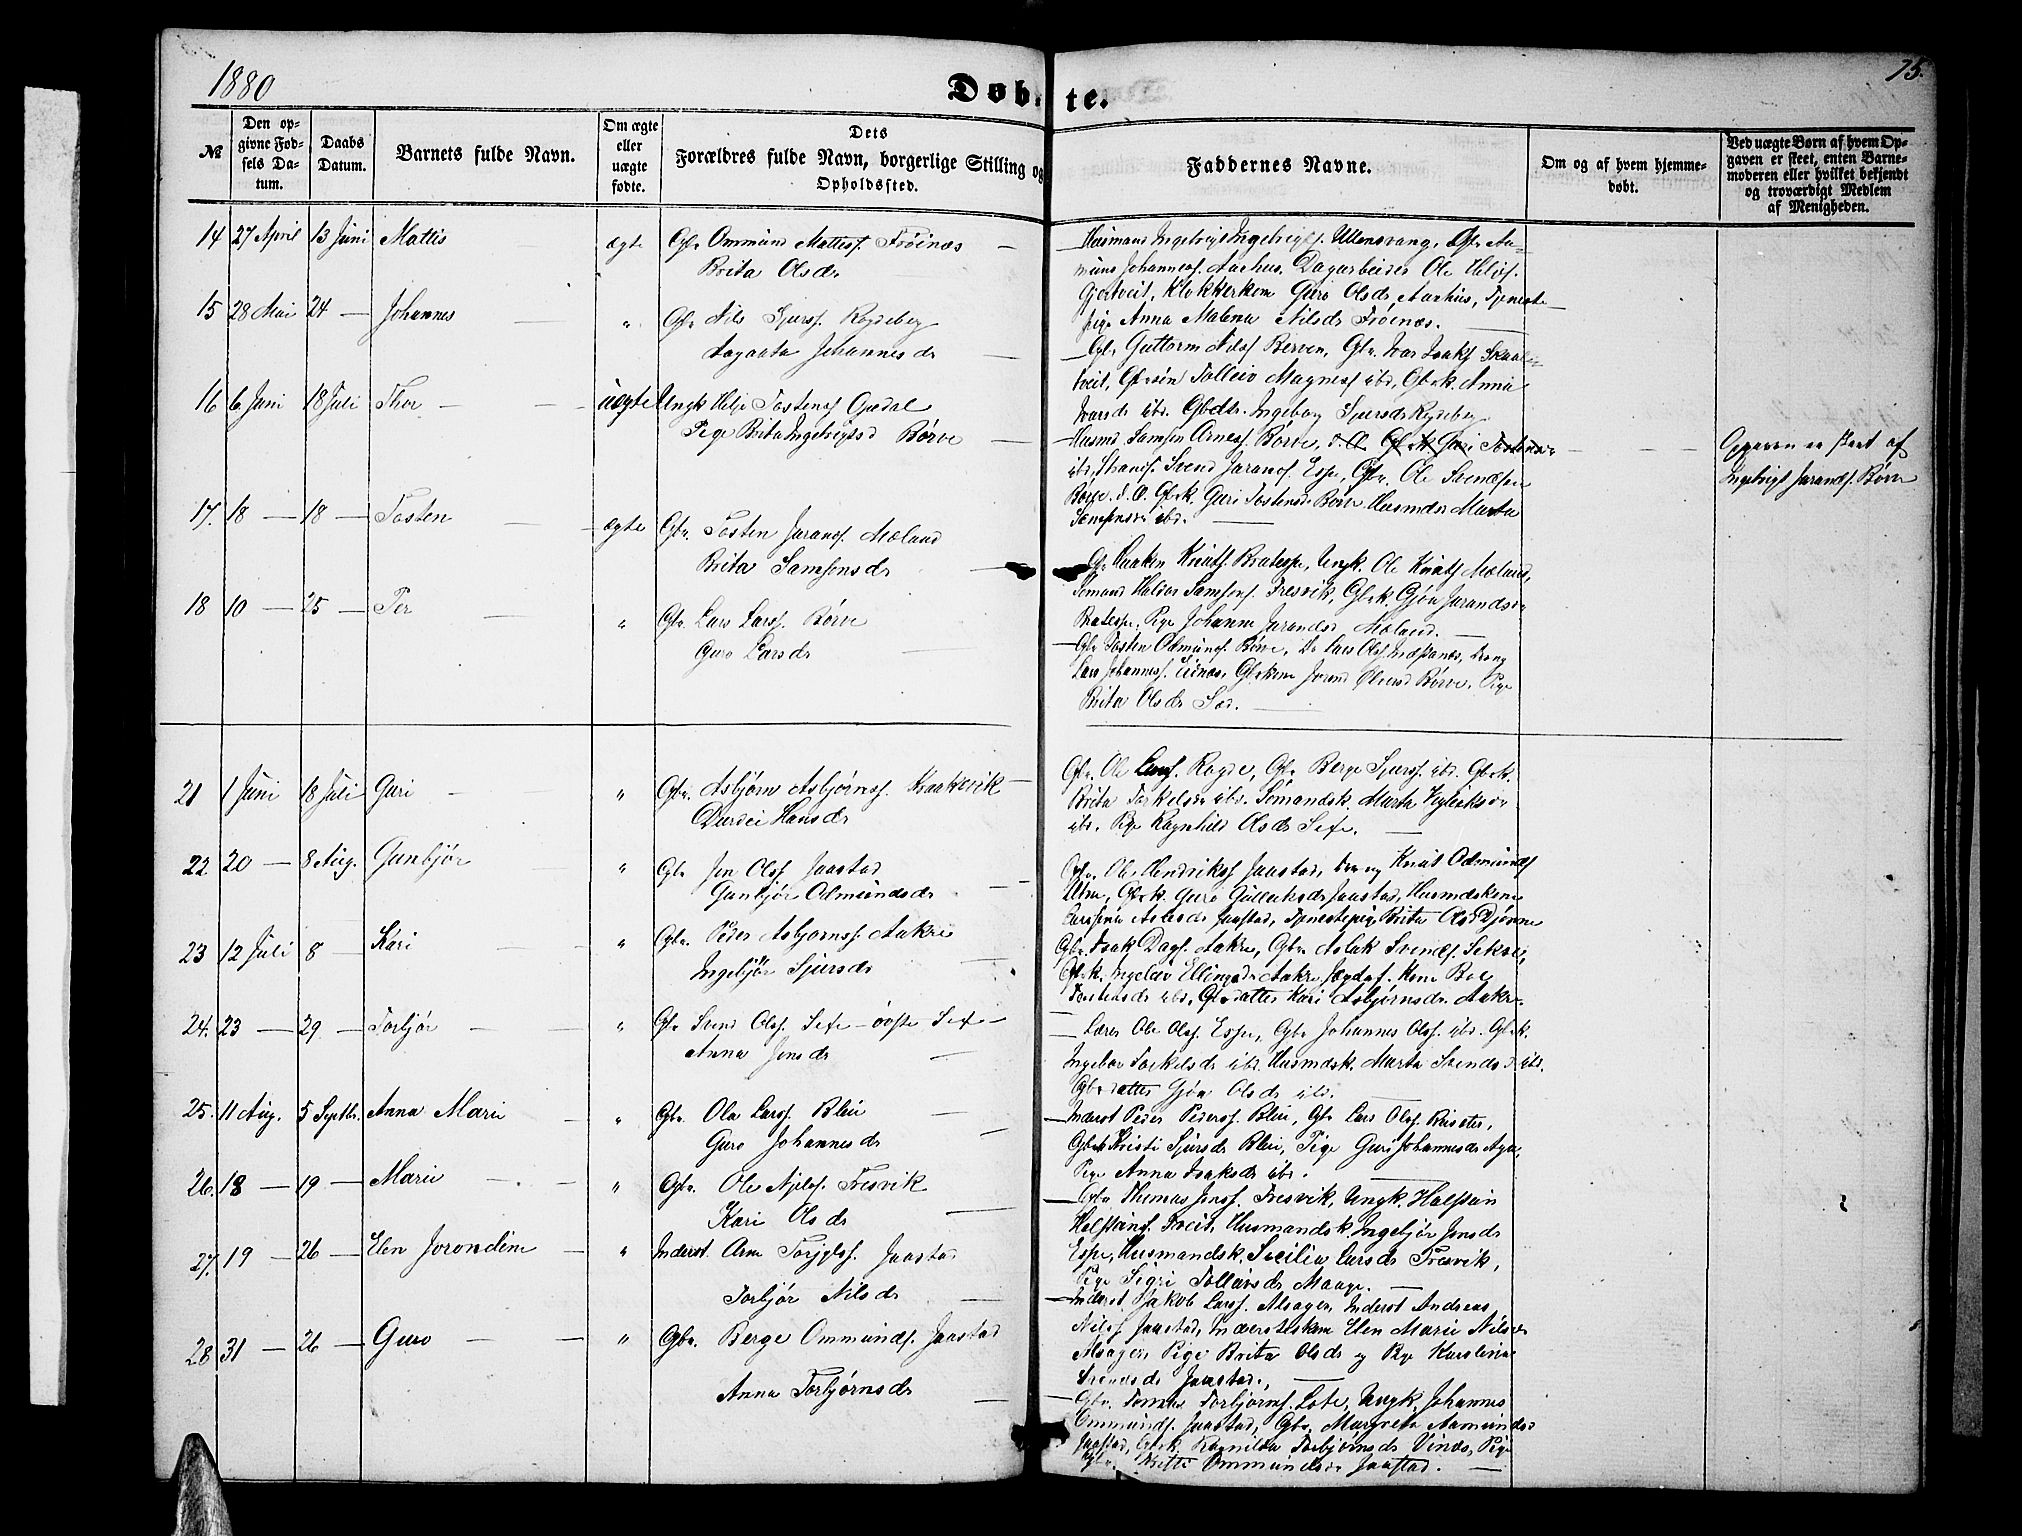 1880
Døb- te.
75.
№
Den opgivne Fødsels Datum.
Daabs Datum.
Barnets fulde Navn.
Om ægte eller uægte fødte.
Dets Forældres fulde Navn, borgerlige Stilling og Opholdssted.
Faddernes Navne.
Om og af hvem hjemmedøbt.
Ved uægte Børn af hvem Opgaven er skeet, enten Barnemoderen eller hvilket bekjendt og troværdigt Medlem af Menigheden.
14 27 April 13 Juni Mattis ægte Gbr Ommund Mattess. Frøinæs
Brita Olsdr
Husmand Ingebrigt Ingebrigts. Ullensvang, Gbr Aa-
mund Johanness. Aarhus, Dagarbeider Ole Helgs.
Gjertveit, Klokkerkone Guro Olsdr Aarhus, Tjeneste
pige Anna Malena Nilsdr Frøenæs.
15 28 Mai 24 — Johannes — " Gbr Nils Sjurss. Rogdeberg
Aagaata Johannesdr
Gbr Guttorm Nilss Berven, Gbr. Ivar Isaks Skaal-
tveit, Gbrsøn Tolleiv Magness ibd, Gbrk. Anna
Ivarsdr ibd. Gbdtr. Ingeborg Sjursdr Rogdeberg
16 6 Juni 18 Juli Thor — uægte Ungk Helje Tostens Opedal
Pige Brita Ingebrigtsd Børve
Husmd Samson Arness. Børve, F. A. Gbrk Guri Tostensdr
ibd, Strands. Svend Jarands. Espe, Gbr. Ole Svendsen
Børve. F. A. Gbrk. Guri Tostensdr Børve Husmdsk Marta
Samsonsdr ibd.
Opgaven er skeet af
Ingebrigt Jarands. Børve
17. 18 — 18 — Tosten — ægte Gbr. Tosten Jarands. Mæland
Brita Samsonsdr
Gbr Haaken Knuts. Bratespe, Ungk. Ole Knuts Mæland,
Sømand Haldor Samsons. Fresvik, Gbrk. Gjøa Jarandsdr
Bratespe, Pige Johanna Jarandsdr Mæland.
18 10 — 25 — Per — " Gbr. Lars Larss. Børve
Guro Larsdr
Gbr Tosten Odmunds. Børve, Do Lars Olss. Indstenæs, Dreng
Lars Johanness. Eidnæs, Gbrkone Jorand Ølversd Børve, Pige
Brita Olsdr Sæd.
21 1 Juni 18 Juli Guri — " Gbr. Asbjørn Asbjørnss. Kraakevik
Durdei Hansdr
Gbr. Ole Larss. Rogde, Gbr Berge Sjurss. ibd. Gbrk.
Brita Torkelsdr ibd. Sømandsk. Marta Vigleiksdr
ibd. Pige Ragnhild Olsdr Sexe.
22. 20 — 8 Aug. Gunbjør " Gbr Jon Olss. Jaastad
Gunbjør Odmundsdr
Gbr. Ole Hendrikss Jaastad, Dreng Knut Odmunds
Utne, Gbrk. Guro Gulleiksdr Jaastad, Husmdskone
Aslasdr Jaastad, Tjenestepige Brita Olsd Djønne
23 12 Juli 8 — Kari — " Gbr. Peder Asbjørnss. Aakre
Ingebjør Sjursdr
Gbr. Isak Dags. Aakre, Gbr Aslak Svends. Sekse,
Gbrk. Ingelæv Ellingsdr Aakre, Kone
Tostensdr ibd, Gbrdatter Kari Asbjørnsdr Aakre
24. 23 — 29 — Torbjør — " Gbr Svend Olss. Sexe — øvste Sexe —
Anna Jonsdr
— Lærer Ole Olss. Espe, Gbr Johannes Olss. ibd. Gbrk.
Ingebor Torkelsdr ibd. Husmdsk. Marta Svendsd ibd.
Gbrdatter Gjøa Olsdr ibd.
25. 11 Aug. 5 Septbr. Anna Marie — " Gbr. Ola Larss. Bleie
Guro Johannesdr
Inderst Peder Pederss. Bleie, Gbr Lars Olss. Reiseter,
Gbrk Kristi Sjursdr Bleie, Pige Guro Johannesdr Aga,
Pige Anna Isaksdr ibd.
26. 18 — 19 — Marie — " Gbr. Ole Njels. Fresvik
Kari Olsdr
Gbr Thomas Jonss. Fresvik, Ungk. Halstein
Halsteins. Tveit, Husmandsk. Ingebjør Jonsdr
Espe, Husmandsk. Sicilia Larsdr Fresvik,
Pige Sigri Tolleivsdr Maage.
27. 19 — 26 — Elen Jorondine — " Inderst. Arne Torjyls. Jaastad
Torbjør Nilsdr
Inderst Jakob Larss. Alsager, Inderst Andreas
Nilss Jaastad, Inderstskone Elen Marie Nilsdr
Alsager, Pige Brita Olsdr og Pige Karolina
Svendsdr Jaastad.
28 31 — 26 — Guro — " Gbr. Berge Ommunds. Jaastad
Anna Torbjørnsdr
Gbr. Tomas Torbjørnss. Lote, Ungk. Johannes
Ommunds. Jaastad, Gbr. Margreta Aamundsd
Jaastad, Gbrk. Ragnilda Torbjørnsdr Vinæs, Pige
Ommundsdr Jaastad.